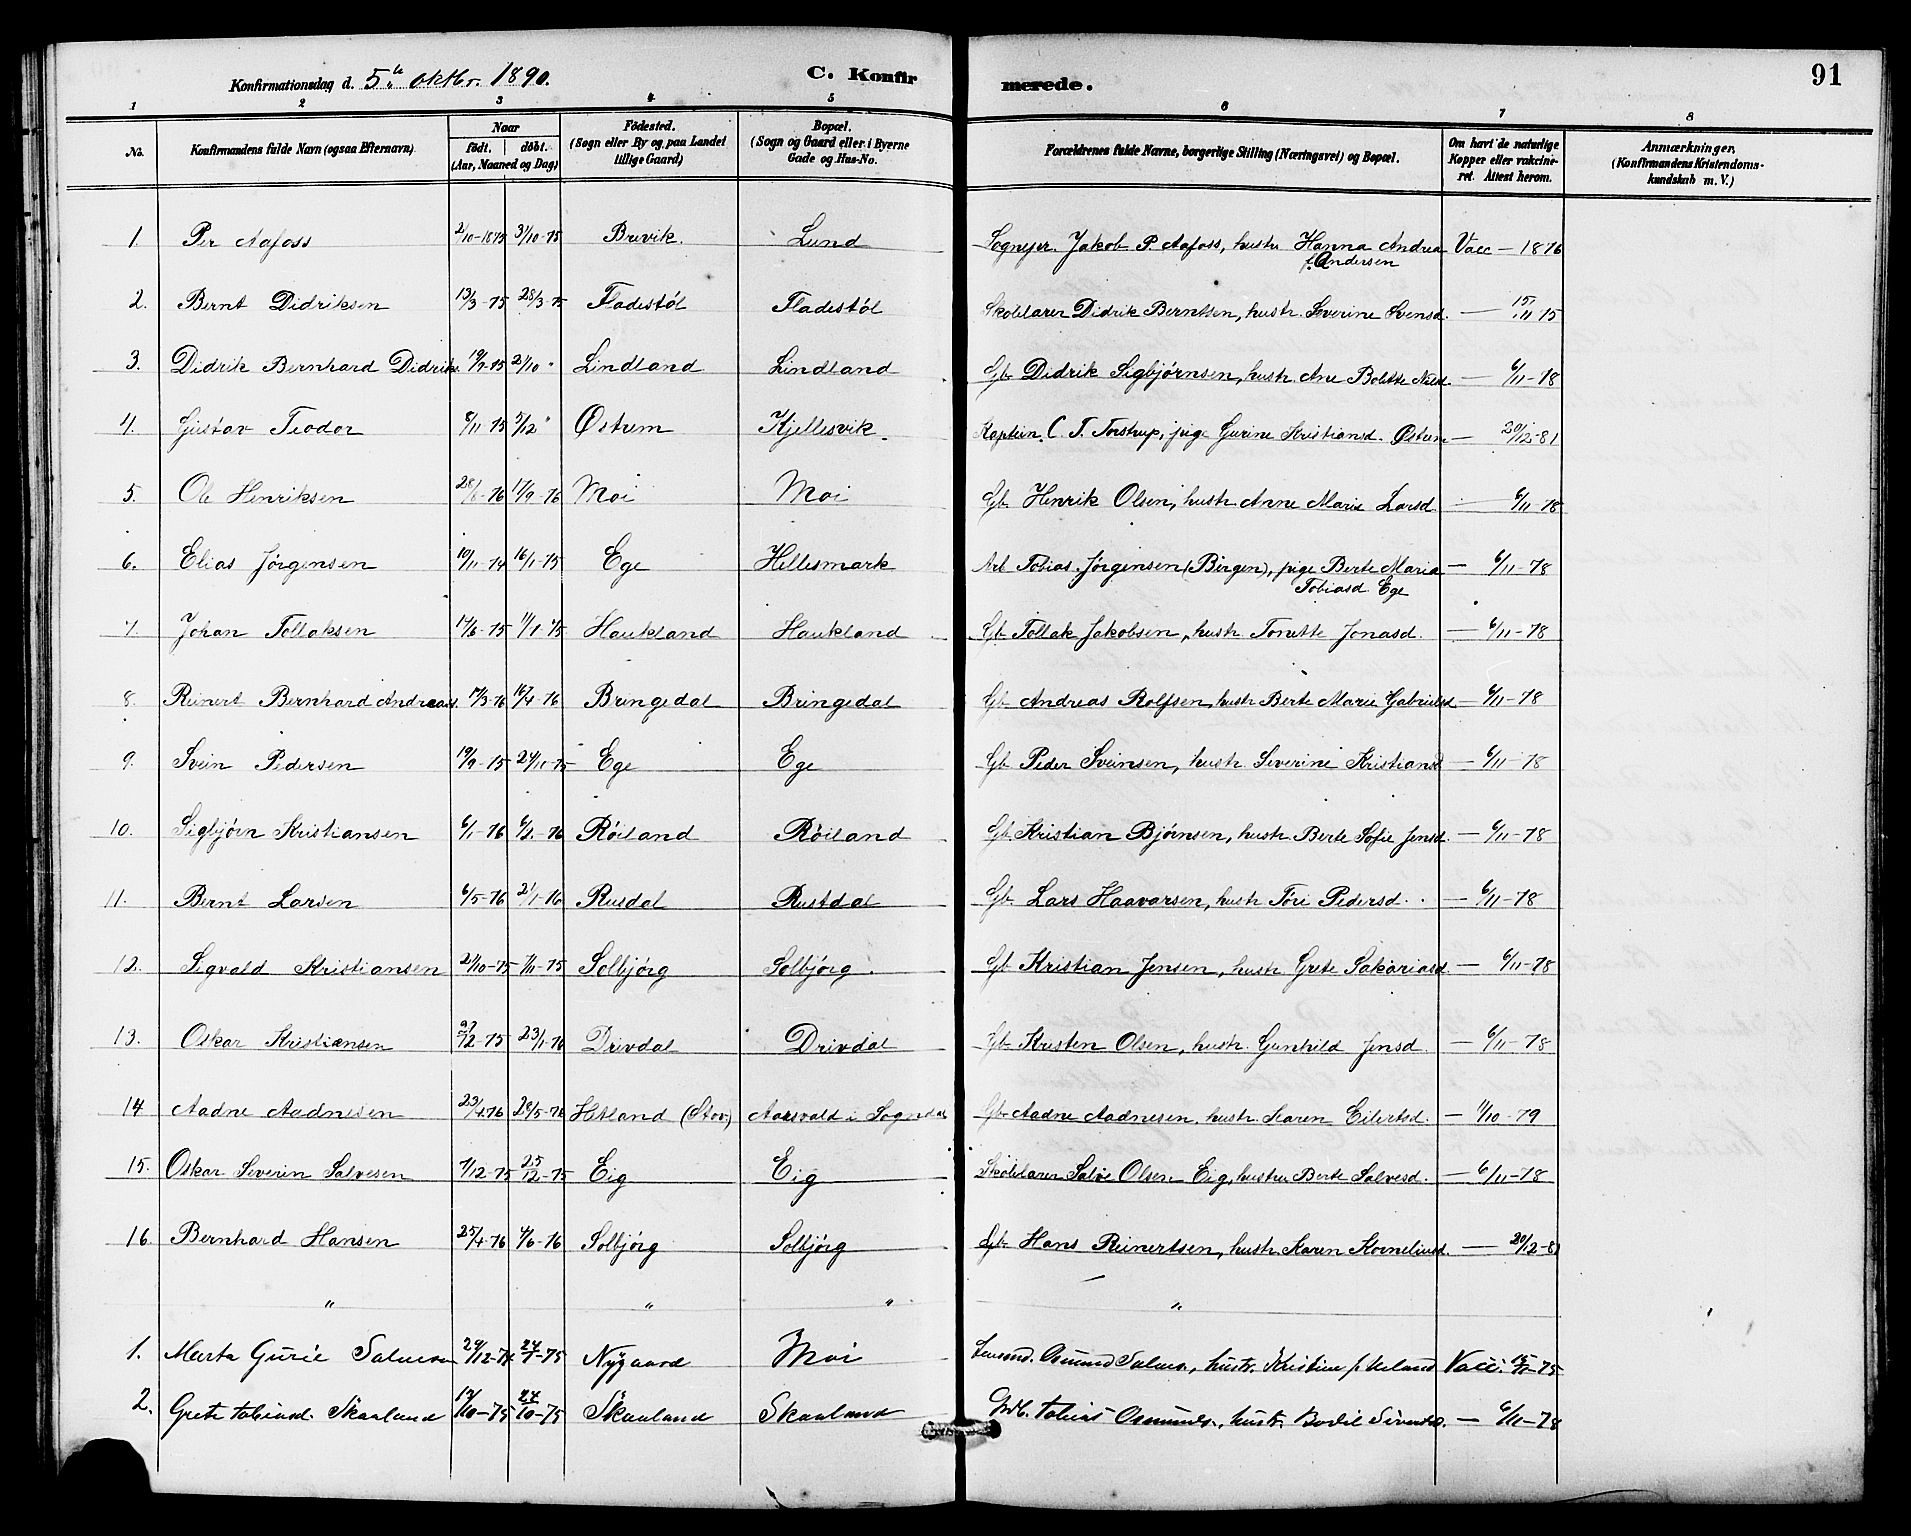 Konfirmationsdag d. 5te Oktbr. 1890.
C. Konfirmerede.
91
1 2 3 4 5 6 7 8
No. Konfirmandens fulde Navn (ogsaa Efternavn). Naar født. døbt. (Aar, Maaned og Dag) Fødested. (Sogn eller By og paa Landet tillige Gaard) Bopæl. (Sogn og Gaard eller i Byerne Gade og Hus-No. Forældrenes fulde Navne, borgerlige Stilling (Næringsvei) og Bopæl. Om havt de naturlige Kopper eller vakcineret. Attest herom. Anmærkninger. (Konfirmandens Kristendomskundskab m. V.)
1. Per Aafoss 2/10-1875 31/10-75 Brevik. Lund Sognepr. Jakob P. Aafoss, hustr Hanna Andrea f. Andersen Vacc - 1876
2. Bernt Didriksen 13/3-75 28/3-75 Fladestöl Fladestöl Skolelærer Didrik Berntsen, hustr. Severine Svensd. — 15/11 75
3. Didrik Bernhard Didriks. 19/9-75 21/10 " Lindland Lindland Gb Didrik Sigbjørnsen, hustr. Ane Bolette Nilsd. — 6/11-78
4. Gustav Teodor 8/11-75 5/12 " Østrem Kjellesvik. Kaptein C. T. Torstrup, pige Gurine Kristiansd. Østrem — 20/12-81
5. Ole Henriksen 28/8-76 17/9-76 Moi Moi Gb Henrik Olsen, hustr. Anne Marie Larsd — 6/11-78
6. Elias Jørgensen 10/11-74 16/1-75 Ege Hellesmark Arb Tobias Jørgensen (Bergen), pige Berte Maria Tobiasd. Ege — 6/11-78
7. Johan Tollaksen 17/6-75 11/1-75 Haukland Haukland Gb Tollak Jakobsen, hustr Tonette Jonasd. — 6/11-78
8. Reinert Bernhard Andreass. 17/3-76 16/4-76 Bringedal Bringedal Gb Andreas Rolfsen, hustr Berte Marie Gabrielsd — 6/11-78
9. Svein Pedersen 19/9-75 24/11-75 Ege Ege Gb Peder Sveinsen, hustr Severine Kristiansd — 6/11-78
10. Sigbjørn Kristiansen 6/1-76 6/2-76 Røiland Røiland Gb Kristian Bjørnsen, hustr. Berte Sofie Jensd. — 6/11-78
11. Bernt Larsen 6/5-76 21/1-76 Rusdal Rustdal Gb. Lars Haavarsen, hustr Tori Pedersd. — 6/11-78
12. Sigvald Kristiansen 21/10-75 7/11-75 Solbjørg Solbjørg. Gb Kristian Jensen, hustr Grete Sakariasd — 6/11-78
13. Oskar Kristiansen 27/12-75 23/1-76 Drivdal Drivdal Gb Kristen Olsen, hustr. Gunhild Jensd. — 6/11-78
14 Aadne Aadnesen 23/4 76 28/5-76 Hetland (Stav.) Aarsvald i Sogndal Gb Aadne Aadnesen, hustr. Karen Eilertsd. — 11/10-79
15. Oskar Severin Salvesen 7/12-75 25/12-75 Eig Eig Skolelærer Salve Olsen Eig, hustru Berte Salvesd. — 6/11-78
16. Bernhard Hansen 25/4-76 4/6-76 Solbjørg Solbjørg Gb Hans Reinertsen, hustr Karen Korneliusd. — 20/12-81
" " " "
1. Marta Gurie 29/12-74 24/1-75 Nygaard Moi Osmund, hustr. Kristine f. Ueland Vacc. 15/11-75
2. Grete Tobiasd. Skaaland 13/10-75 24/10-75 Skaaland Skaaland Grdb. Tobias Osmunds., hustr. Bodil Sivertsd. — 6/11-78